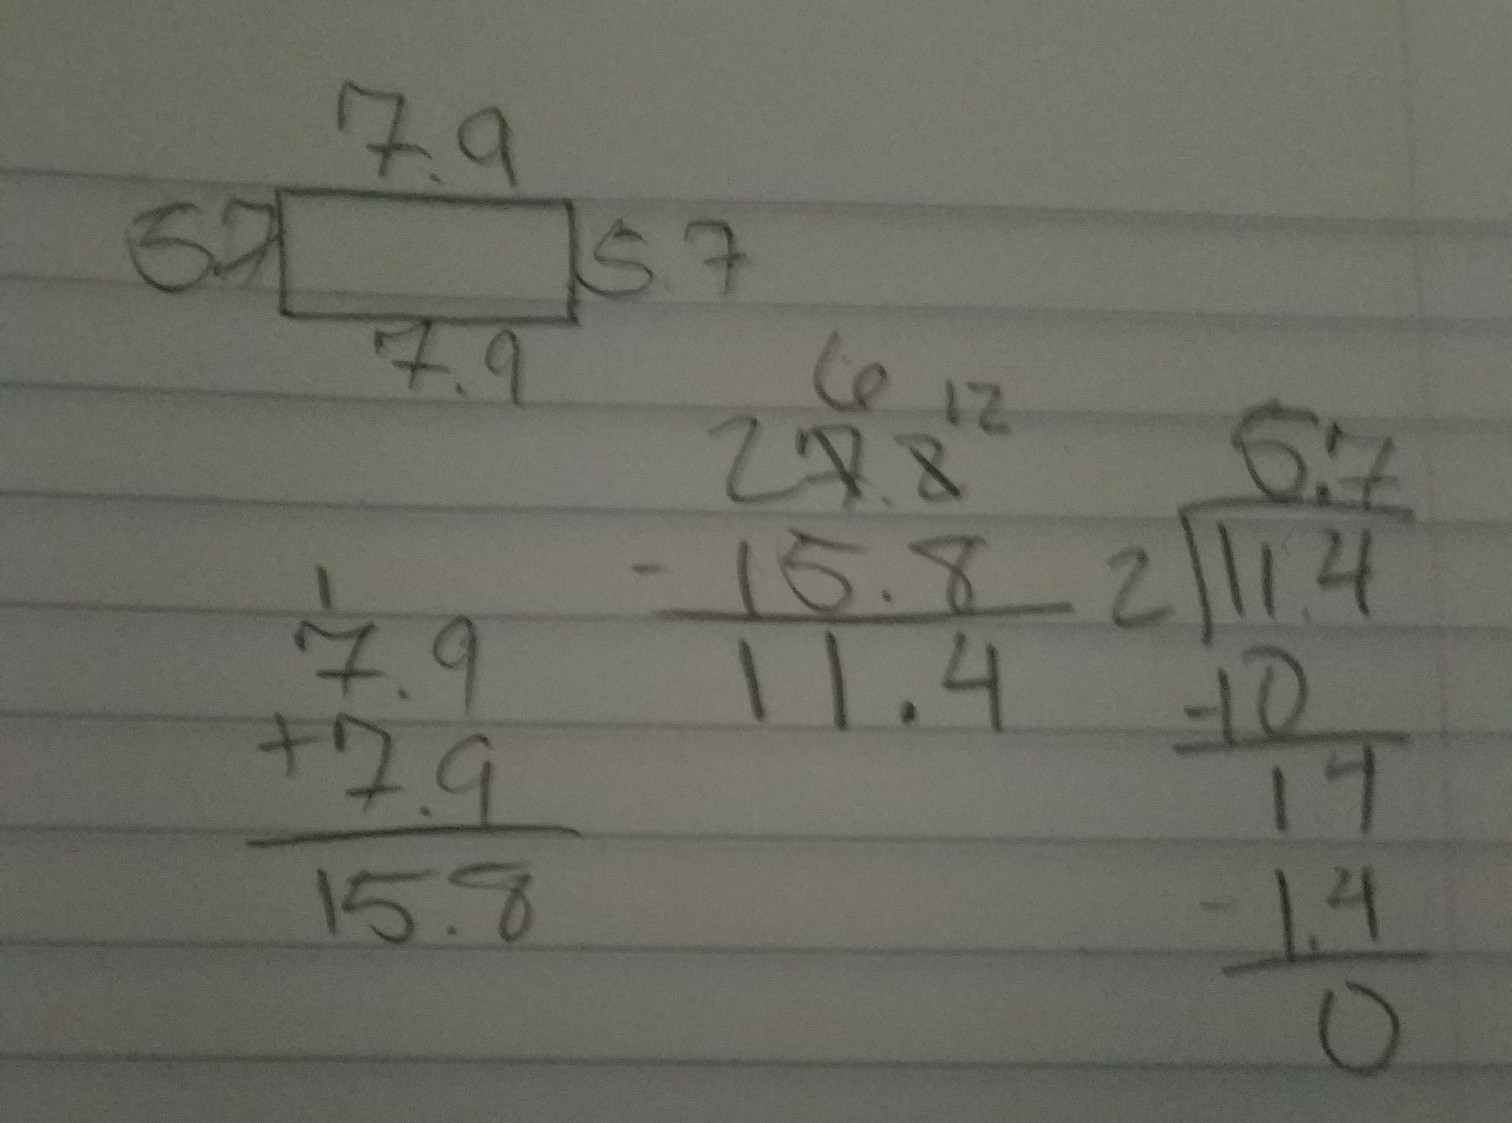 7.9
5.7 5.7
7.9
6 12
27.2
- 15.8
11.4
5.7
2 11.4
-10
14
- 1.4
0
1
7.9
+7.9
15.8